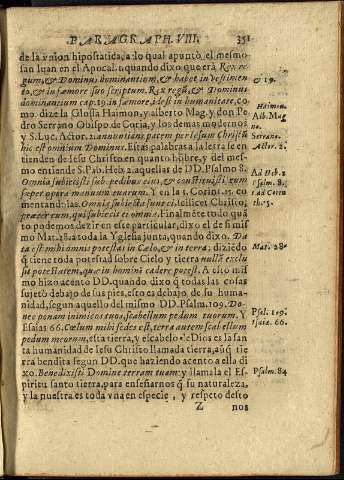 PARAGRAPH. VIII. 351
de la vnion hipostatica, a lo qual apuntò el mesmo
san Iuan en el Apocal. 1. quando dixo que era Rex re
gum, & Dominus dominantium, & habet in vestimen
to, & in fœmore suo scriptum. Rex regũ, & Dominus
dominantium cap. 19. in fœmore, id est in humanitate, co
mo dize la Glossa Haimon, y Alberto Mag. y don Pe
dro Serrano Obispo de Coria, y los demas modernos
y S. Luc. Actor. 2. annuntians pacem per Iesum Christũ
hic est omnium Dominus. Estas palabras a la letra se en
tienden de Iesu Christo en quanto hõbre, y del mes
mo entiende S. Pab. Heb. 2. aquellas de DD. Psalmo 8.
Omnia subiecisti sub pedibus eius, & constituisti eum
super opera manuum tuarum. Y en la 1. Corint. 15. co
mentando: las. Omnia subiecta sunt ei, scilicet Christo,
præter eum, qui subiecit ei omnia. Finalmẽte todo quã
to podemos dezir en este particular, dixo el de si mis
mo Mat. 28. a toda la Yglesia junta, quando dixo. Da
ta est mihi omnis potestas in Cælo, & in terra; diziẽdo
q̃ tiene toda potestad sobre Cielo y tierra nullã exclu
sis potestatem, quæ in hominẽ cadere potest. A esto mis
mo hizo acento DD. quando dixo q̃ todas las cosas
sujetò debajo de sus pies, esto es debajo de su huma-
nidad, segun aquello del mismo DD. Psalm. 109. Do-
nec ponam inimicos tuos, scabellum pedum tuorum. Y
Esaias 66. Cœlum mihi sedes est, terra autem scabellum
pedum meorum, esta tierra, y escabelo de Dios es la san
ta humanidad de Iesu Christo llamada tierra, aũq̃ tie
rra bendita segun DD. que haziendo acento a ella di
xo. Benedixisti Domine terram tuam: y llamala el Es-
piritu santo tierra, para enseñarnos q̃ su naturaleza,
y la nuestra es toda vna en especie, y respeto desto
Z nos
& 19.
Haimon.
Alb. Mag
no.
Serrano.
Actor. 2.
Ad Heb. 2
Psalm. 8.
1 ad Corin
th. 15.
Mat. 28.
Psal. 109.
Isaiæ. 66.
Psalm. 84